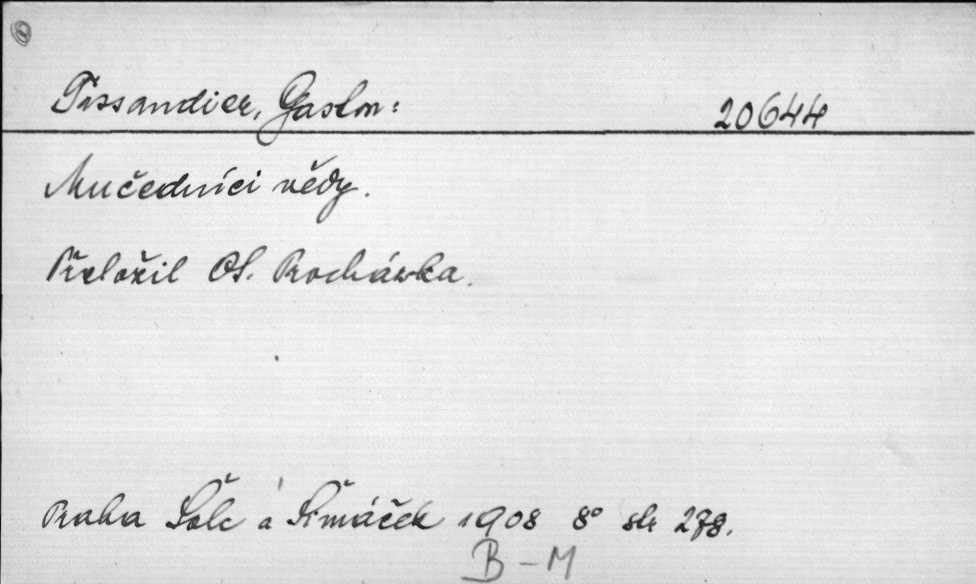 Tissandier, Gaston: 20644
Mučedníci vědy.
Přeložil Ot. Procházka.
Praha Šolc a Šimáček 1908 8° str 278.
B-M